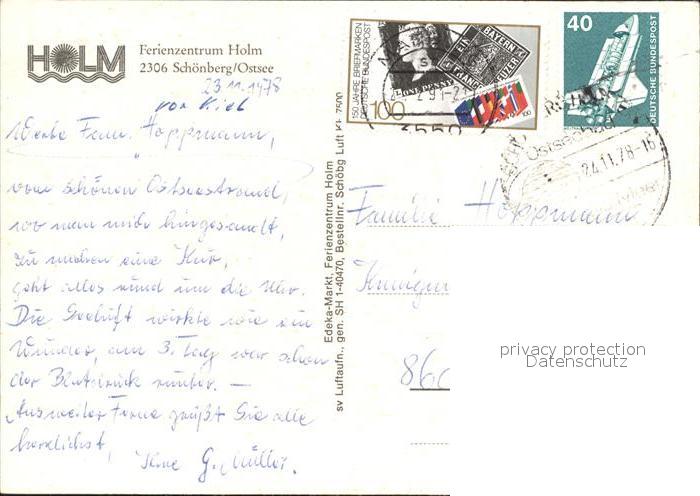 HOLM
Ferienzentrum Holm
2306 Schönberg/Ostsee
23.11.1978
von Kiel
Werte Fam. Hoppmann,
vom schönen Ostseestrand,
wo man mich hingesandt,
zu machen eine Kur,
geht alles rund um die Uhr.
Die Seeluft wirkte wie ein
Wunder, am 3. Tag war schon
der Blutdruck runter. —
Aus weiter Ferne grüßt Sie alle
herzlichst,
Ihre G. Müller.
Edeka-Markt, Ferienzentrum Holm
sv Luftaufn., gen. SH 1-40470, Bestellnr. Schöbg Luft KL 7500
150 JAHRE BRIEFMARKEN
DEUTSCHE BUNDESPOST
100
ONE PENNY
BAYERN
EIN
FRANCO
100
3550
40
DEUTSCHE BUNDESPOST
Ostseebad
24.11.78-16
Familie Hoppmann
860
privacy protection
Datenschutz